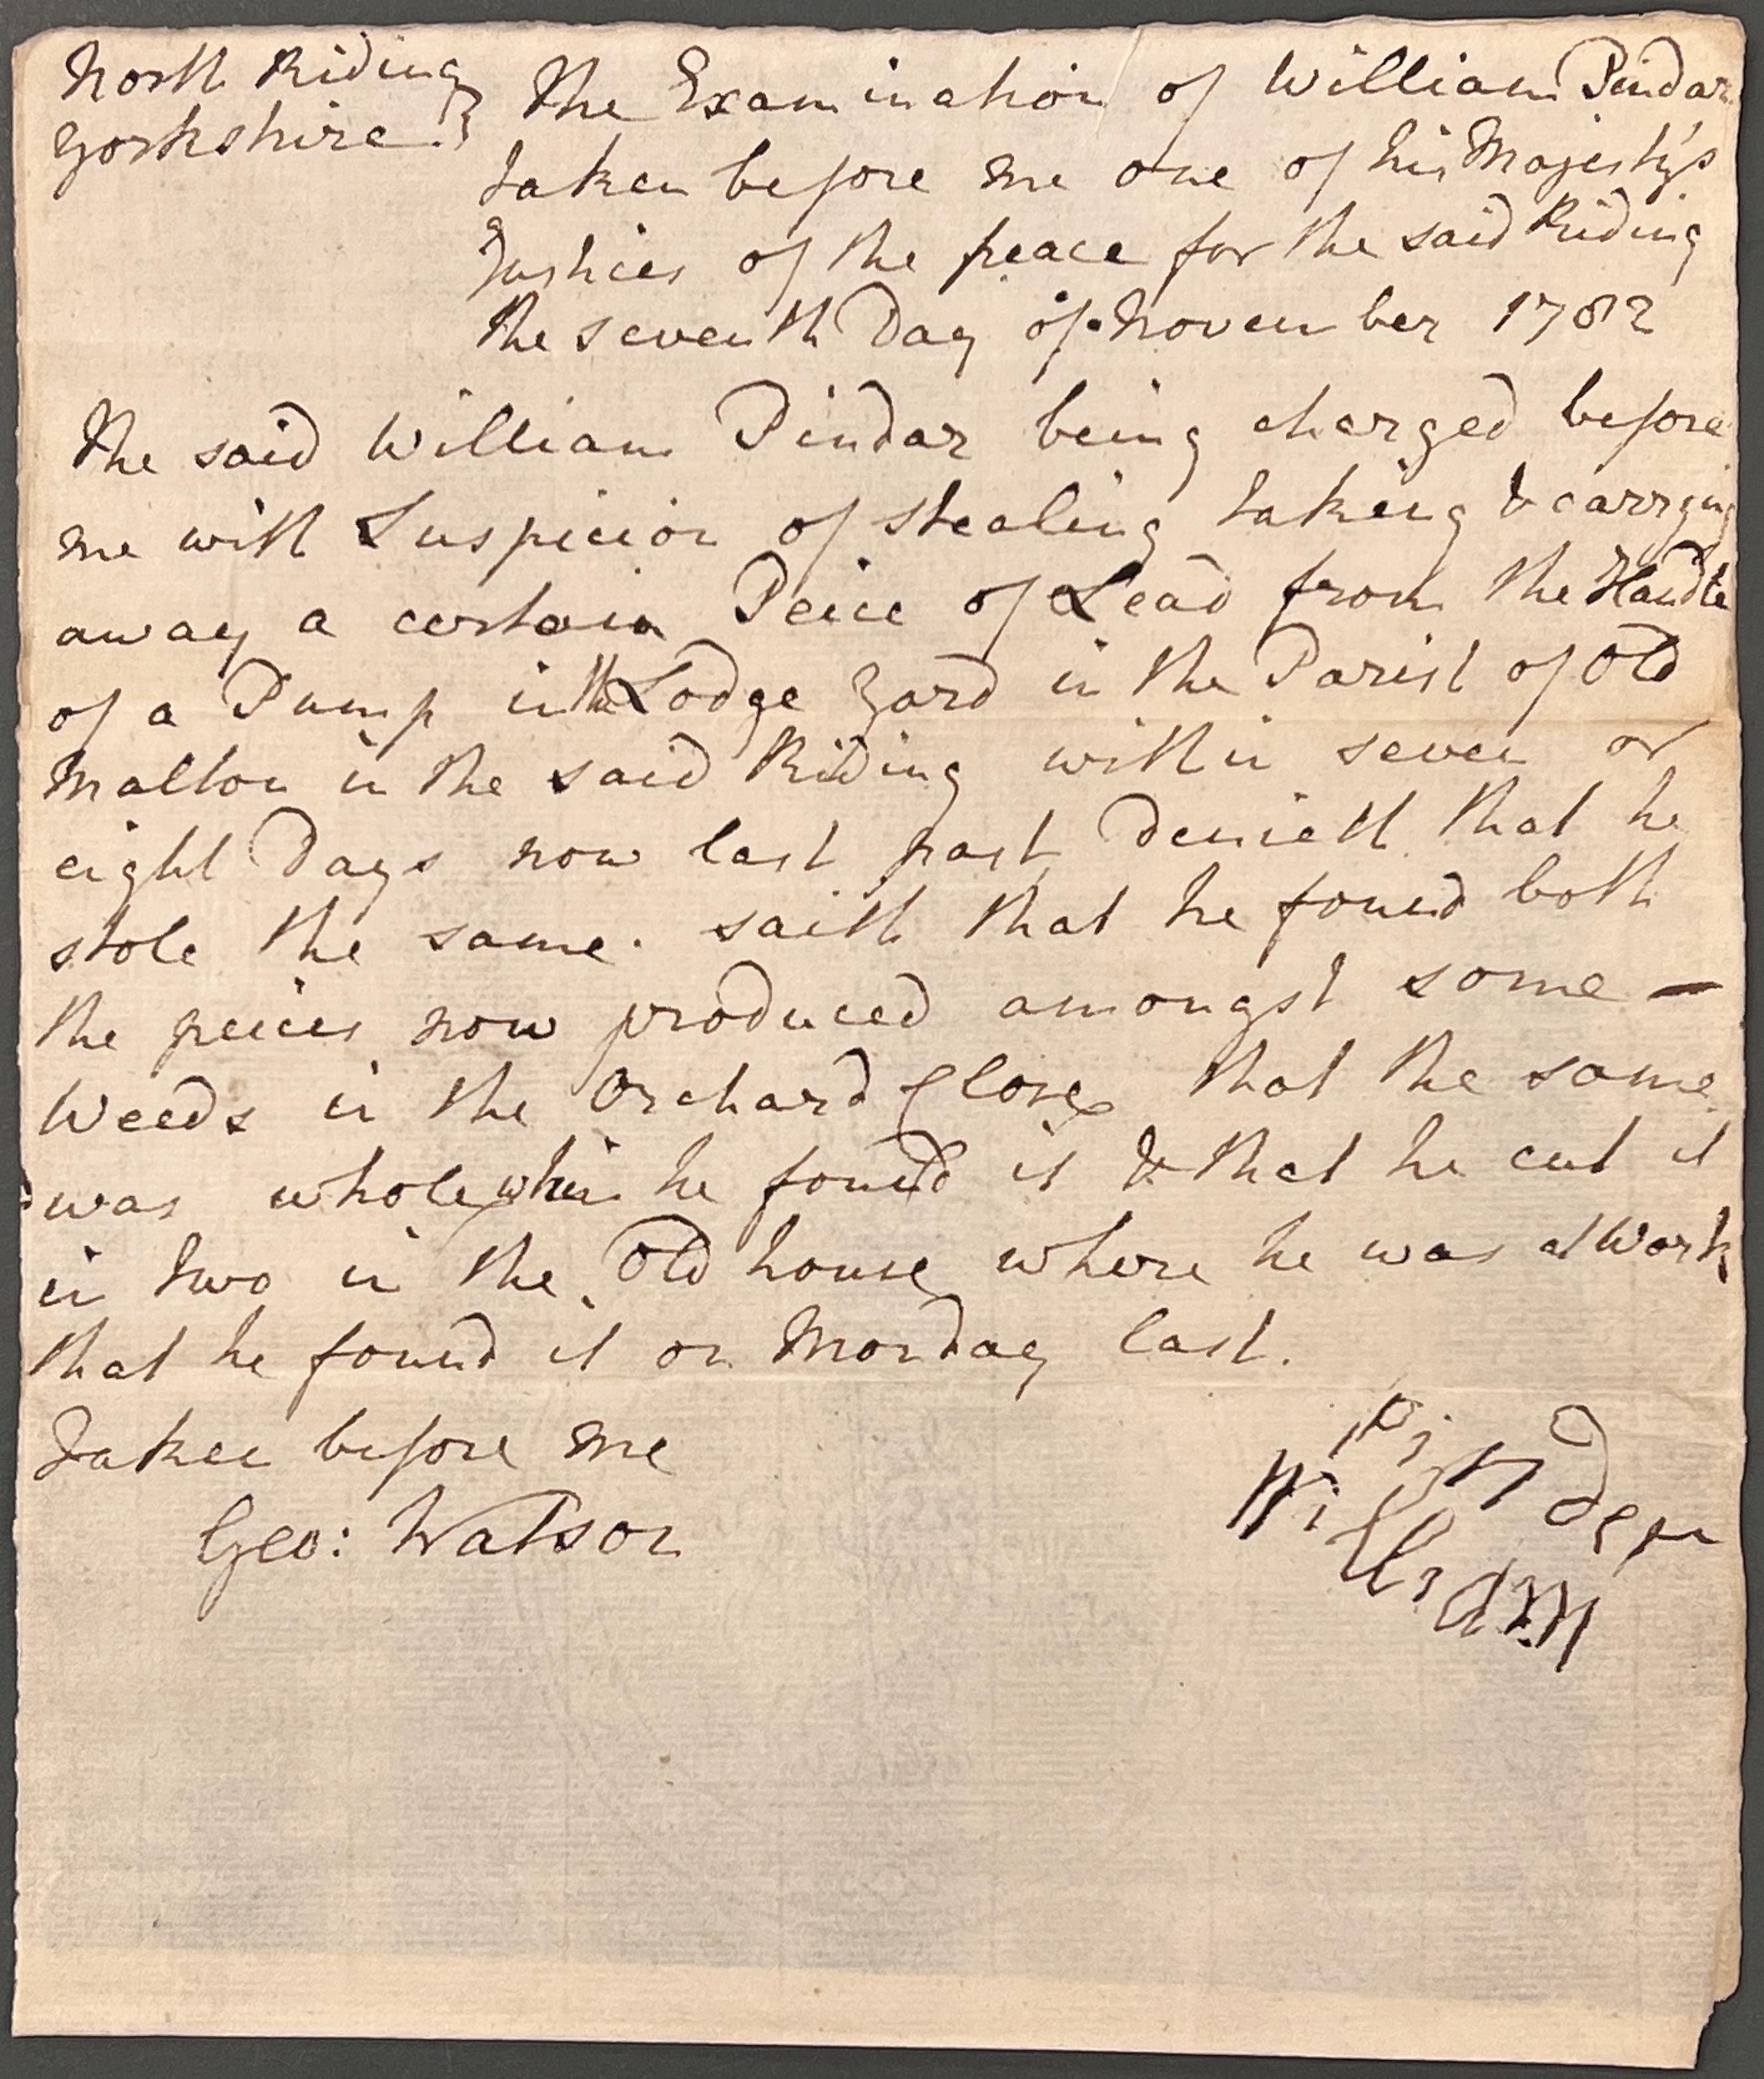 North Riding } The Examination of William Pindar
Yorkshire. } taken before me one of his Majesty's
Justices of the peace for the said Riding
the seventh Day of November 1782
The said William Pindar being charged before
me with Suspicion of stealing taking & carrying
away a certain Peice of Lead from the Handle
of a Pump in the Lodge Yard in the Parish of Old
Malton in the said Riding within seven or
eight Days now last past, denieth that he
stole the same. saith that he found both
the peices now produced amongst some —
Weeds in the Orchard Close that the same
was whole when he found it & that he cut it
in two in the Old house where he was at Work
that he found it on Monday last.
Taken before me
Geo: Watson
William
Pinder